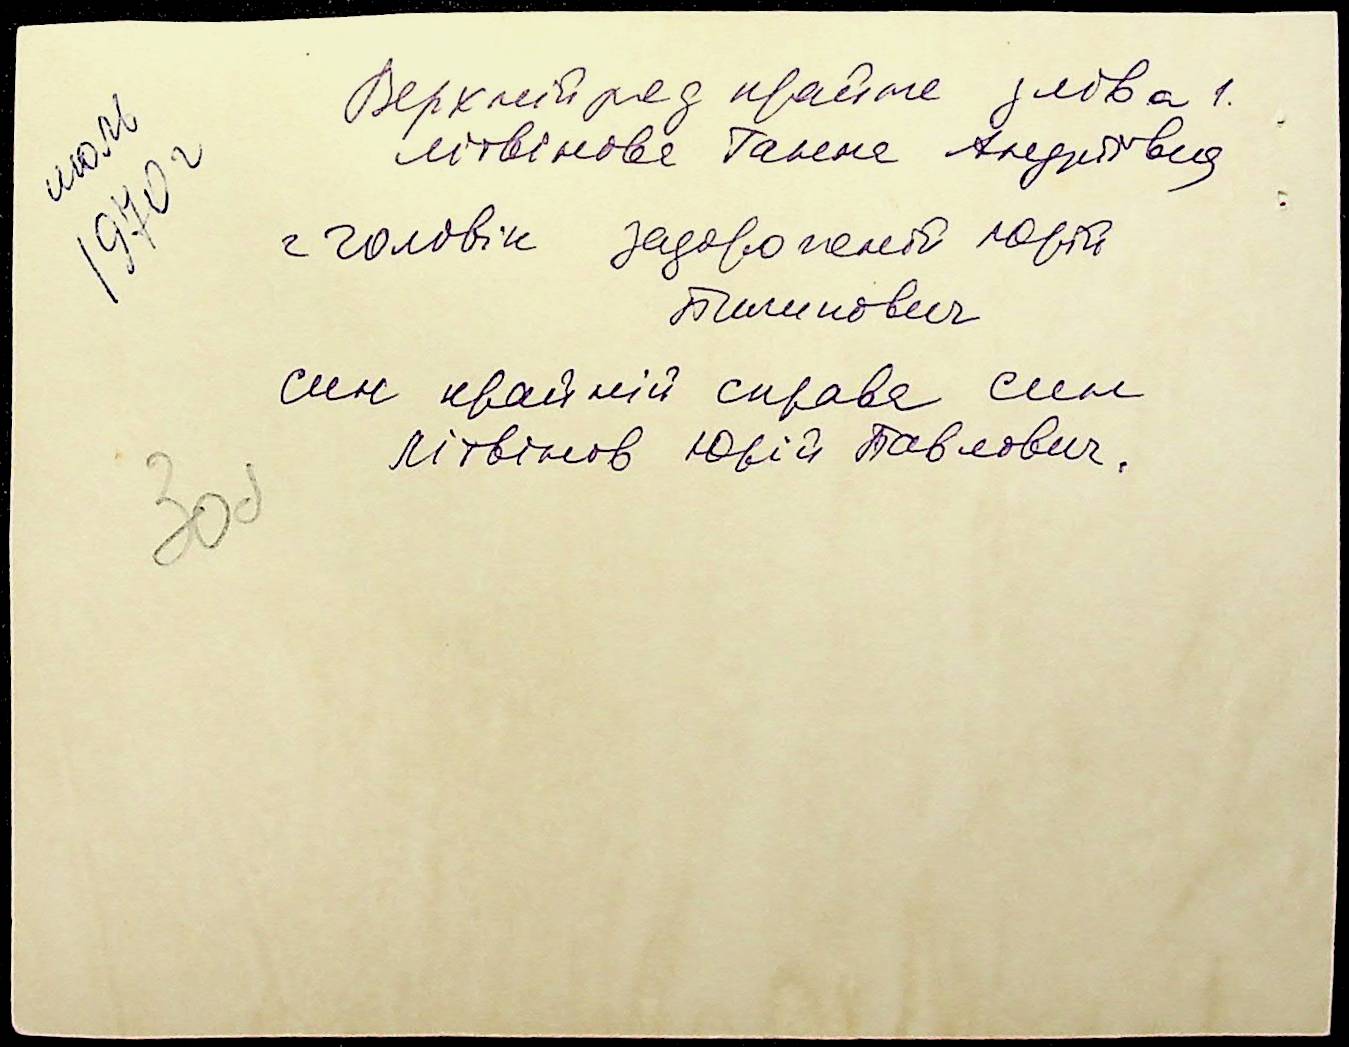 июль
1970 г
Верхній ряд крайня зліва 1.
Літвінова Ганна Андріївна
2 Чоловік Задорожній Юрій
Пилипович
син крайній справа син
Літвінов Юрій Павлович.